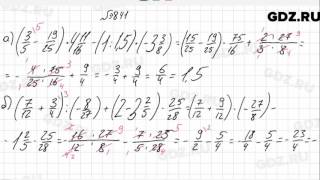 GDZ.RU
№3841
а) (3/5 - 19/25) · 4 11/16 - (-1,15) · (-3 3/8) = (15/25 - 19/25) · 75/16 + 2 · 27/3 · 8 =
= - 4 · 75/25 · 16 + 9/4 = -3/4 + 9/4 = 6/4 = 1,5
б) (7/12 + 3/4) · (-8/27) + (2 - 3 2/5) · 25/28 = (7/12 + 9/12) · (-27/8) -
- 1 2/5 · 25/28 = - 16 · 27/12 · 8 - 7 · 25/5 · 28 = - 9/2 - 5/4 = - 18/4 - 5/4 = - 23/4 = -